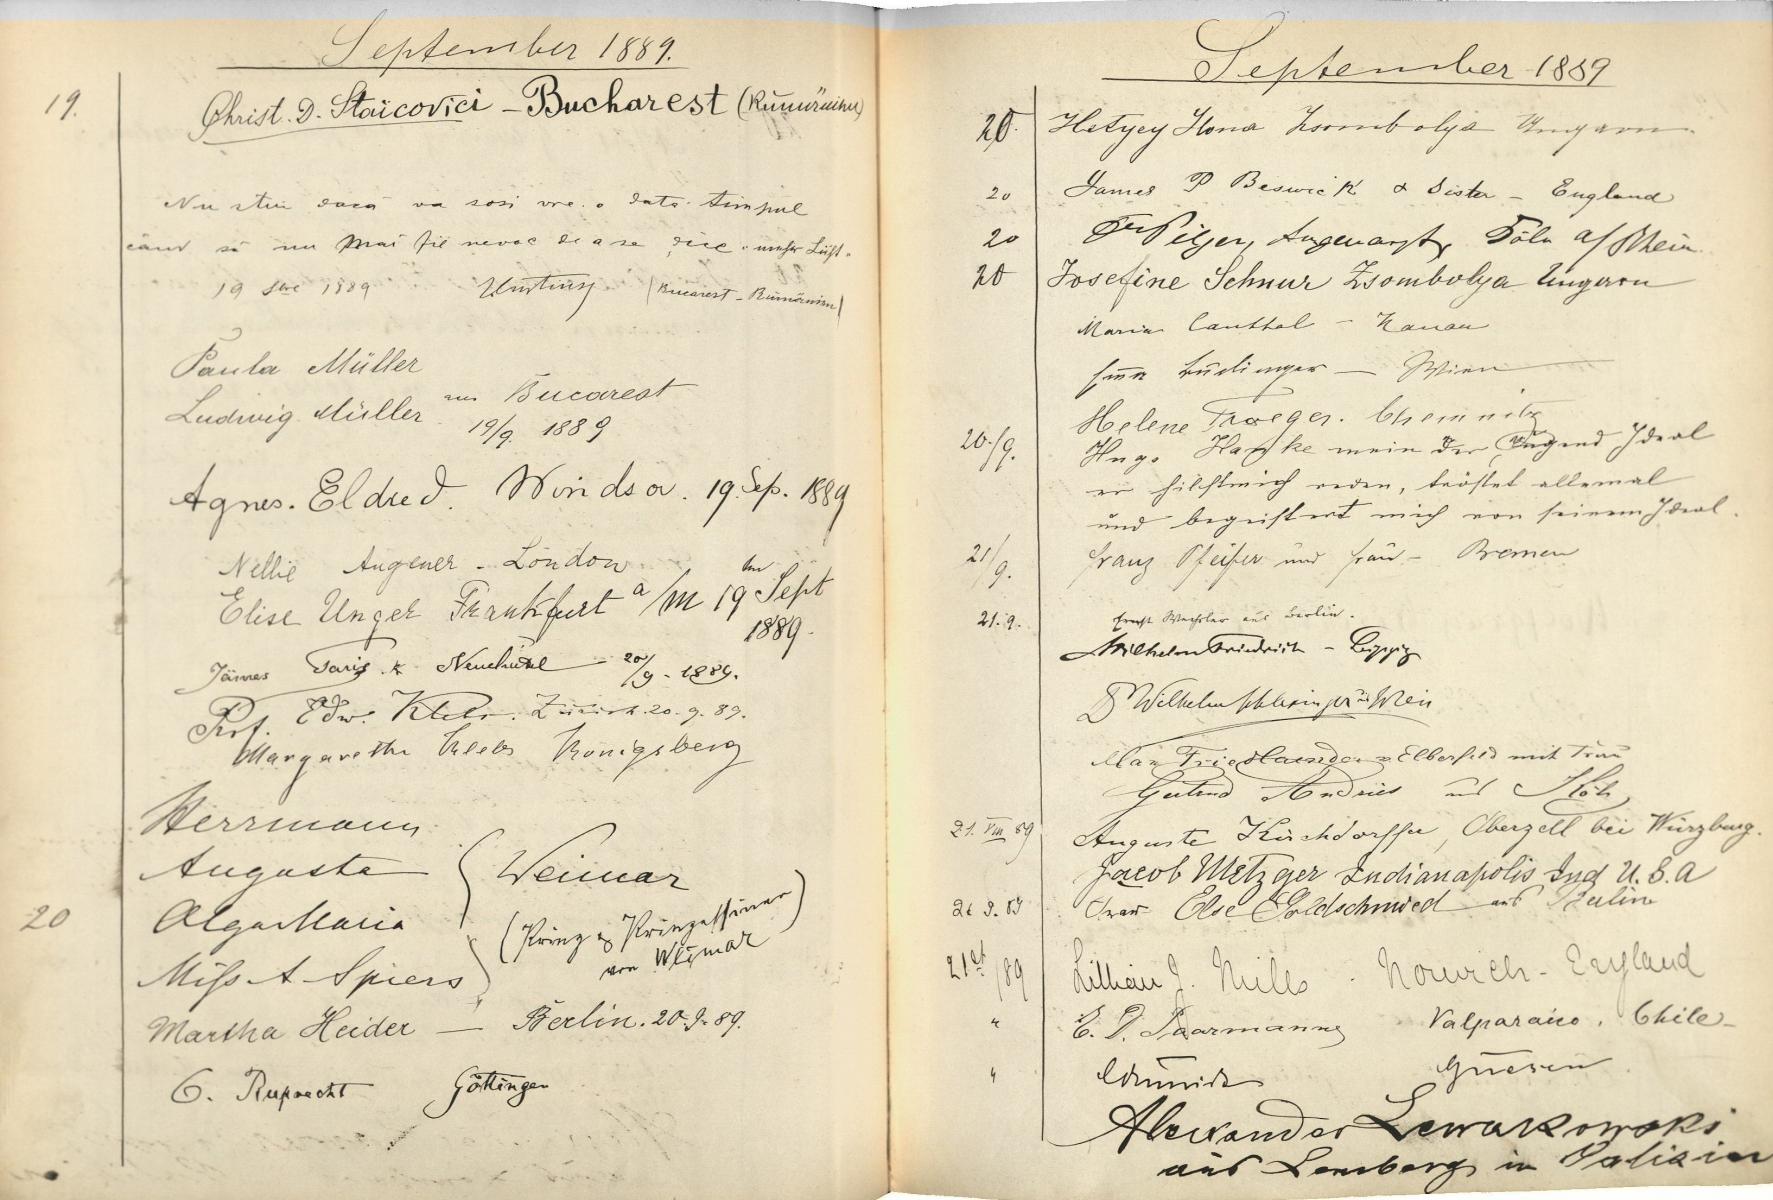 September 1889.
19. Christ. D. Staicovici – Bucharest (Rumänien)
Nu știu dacă va sosi vre o dată timpul
când să nu mai fie nevoe de a se zice
19 1889 (Bucarest – Rumänien)
Paula Müller
Ludwig Müller aus Bucarest
19/9. 1889
Agnes. Eldred. Windsor. 19. Sep. 1889
Nellie Augener – London
Elise Unger Frankfurt a/M 19 ten Sept
1889.
James 20/9 – 1889.
Prof. Edw. Klebs. Zürich. 20. 9. 89.
Margarethe Klebs Königsberg
Herrmann
Augusta Weimar
20 Olga Maria (Prinz & Prinzessinnen
von Weimar)
Miss A Spiers
Martha Heider — Berlin. 20.9.89.
C. Ruprecht Göttingen
September 1889
20. Hetyey Ilona Zsombolya Ungarn
20 James P Beswick & Sister – England
20 Pilger, Augenarzt, Köln a/Rhein
20 Josefine Schnur Zsombolya Ungarn
Maria Hanau
Wien
Helene Troeger. Chemnitz
20./9. Hugo mein der Jugend Ideal
er hilft mich reden, tröstet allemal
und begeistert mich von seinem Ideal.
21/9. Franz Pfeifer und Frau – Bremen
21.9. Ernst Wechsler aus Berlin.
Wilhelm Friedrich – Leipzig
Dr Wilhelm Schlesinger aus Wien
Max Friedlaender Elberfeld mit Frau
Gertrud Andries und
21. VIII 89 Auguste Kirchdorffer, Oberzell bei Würzburg.
Jacob Metzger Indianapolis Ind U.S.A
21 9. 89 Frau Else Goldschmied aus Berlin
21st/89 Lillian J. Mills. Norwich – England
" E. D. Saarmann Valparaiso. Chile –
" Gnesen
Alexander Lewakowski
aus Lemberg in Galizien